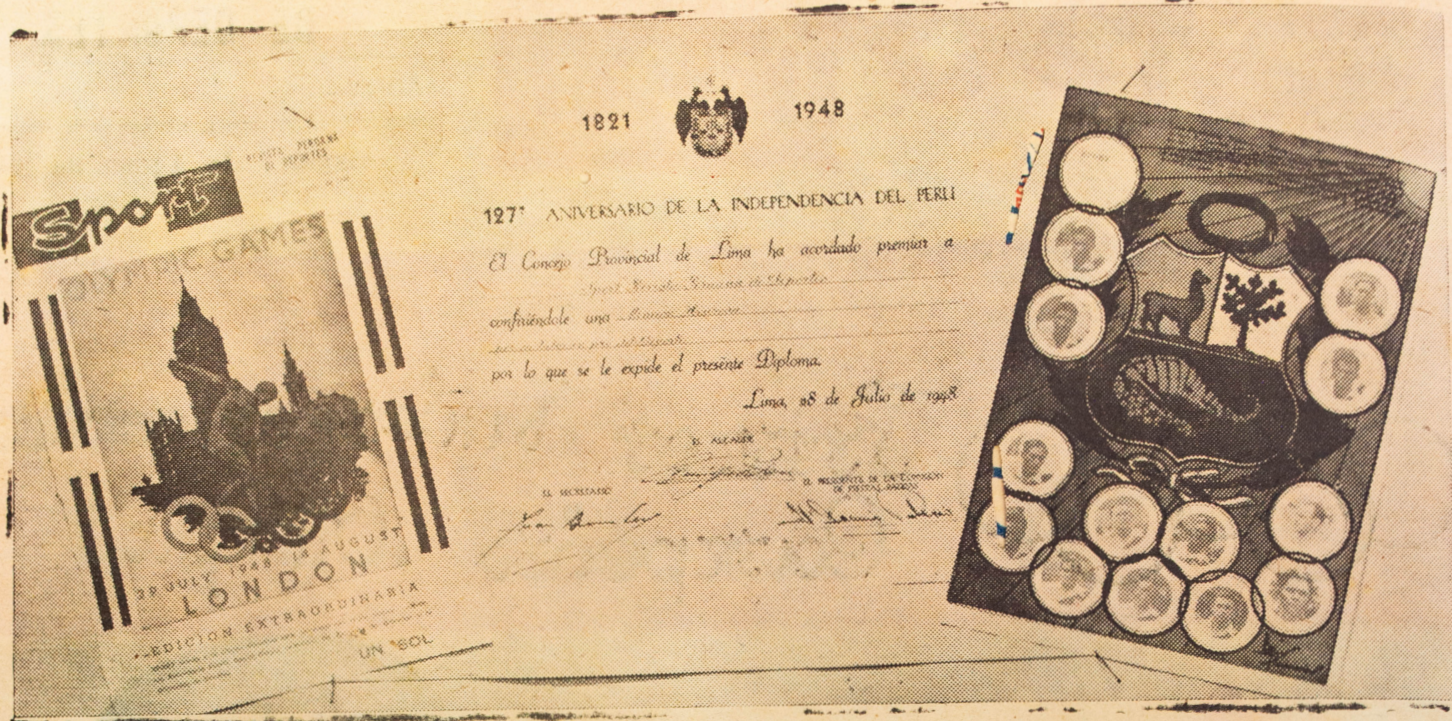 REVISTA PERUANA
DE DEPORTES
Sport
OLYMPIC GAMES
29 JULY 1948 14 AUGUST
LONDON
EDICION EXTRAORDINARIA
UN SOL
1821 1948
127º ANIVERSARIO DE LA INDEPENDENCIA DEL PERU
El Concejo Provincial de Lima ha acordado premiar a
Sport Revista Peruana de Deportes
confiriéndole una
por lo que se le expide el presente Diploma.
Lima, 28 de Julio de 1948
EL ALCALDE
EL SECRETARIO
EL PRESIDENTE DE LA COMISION
DE FIESTAS PATRIAS